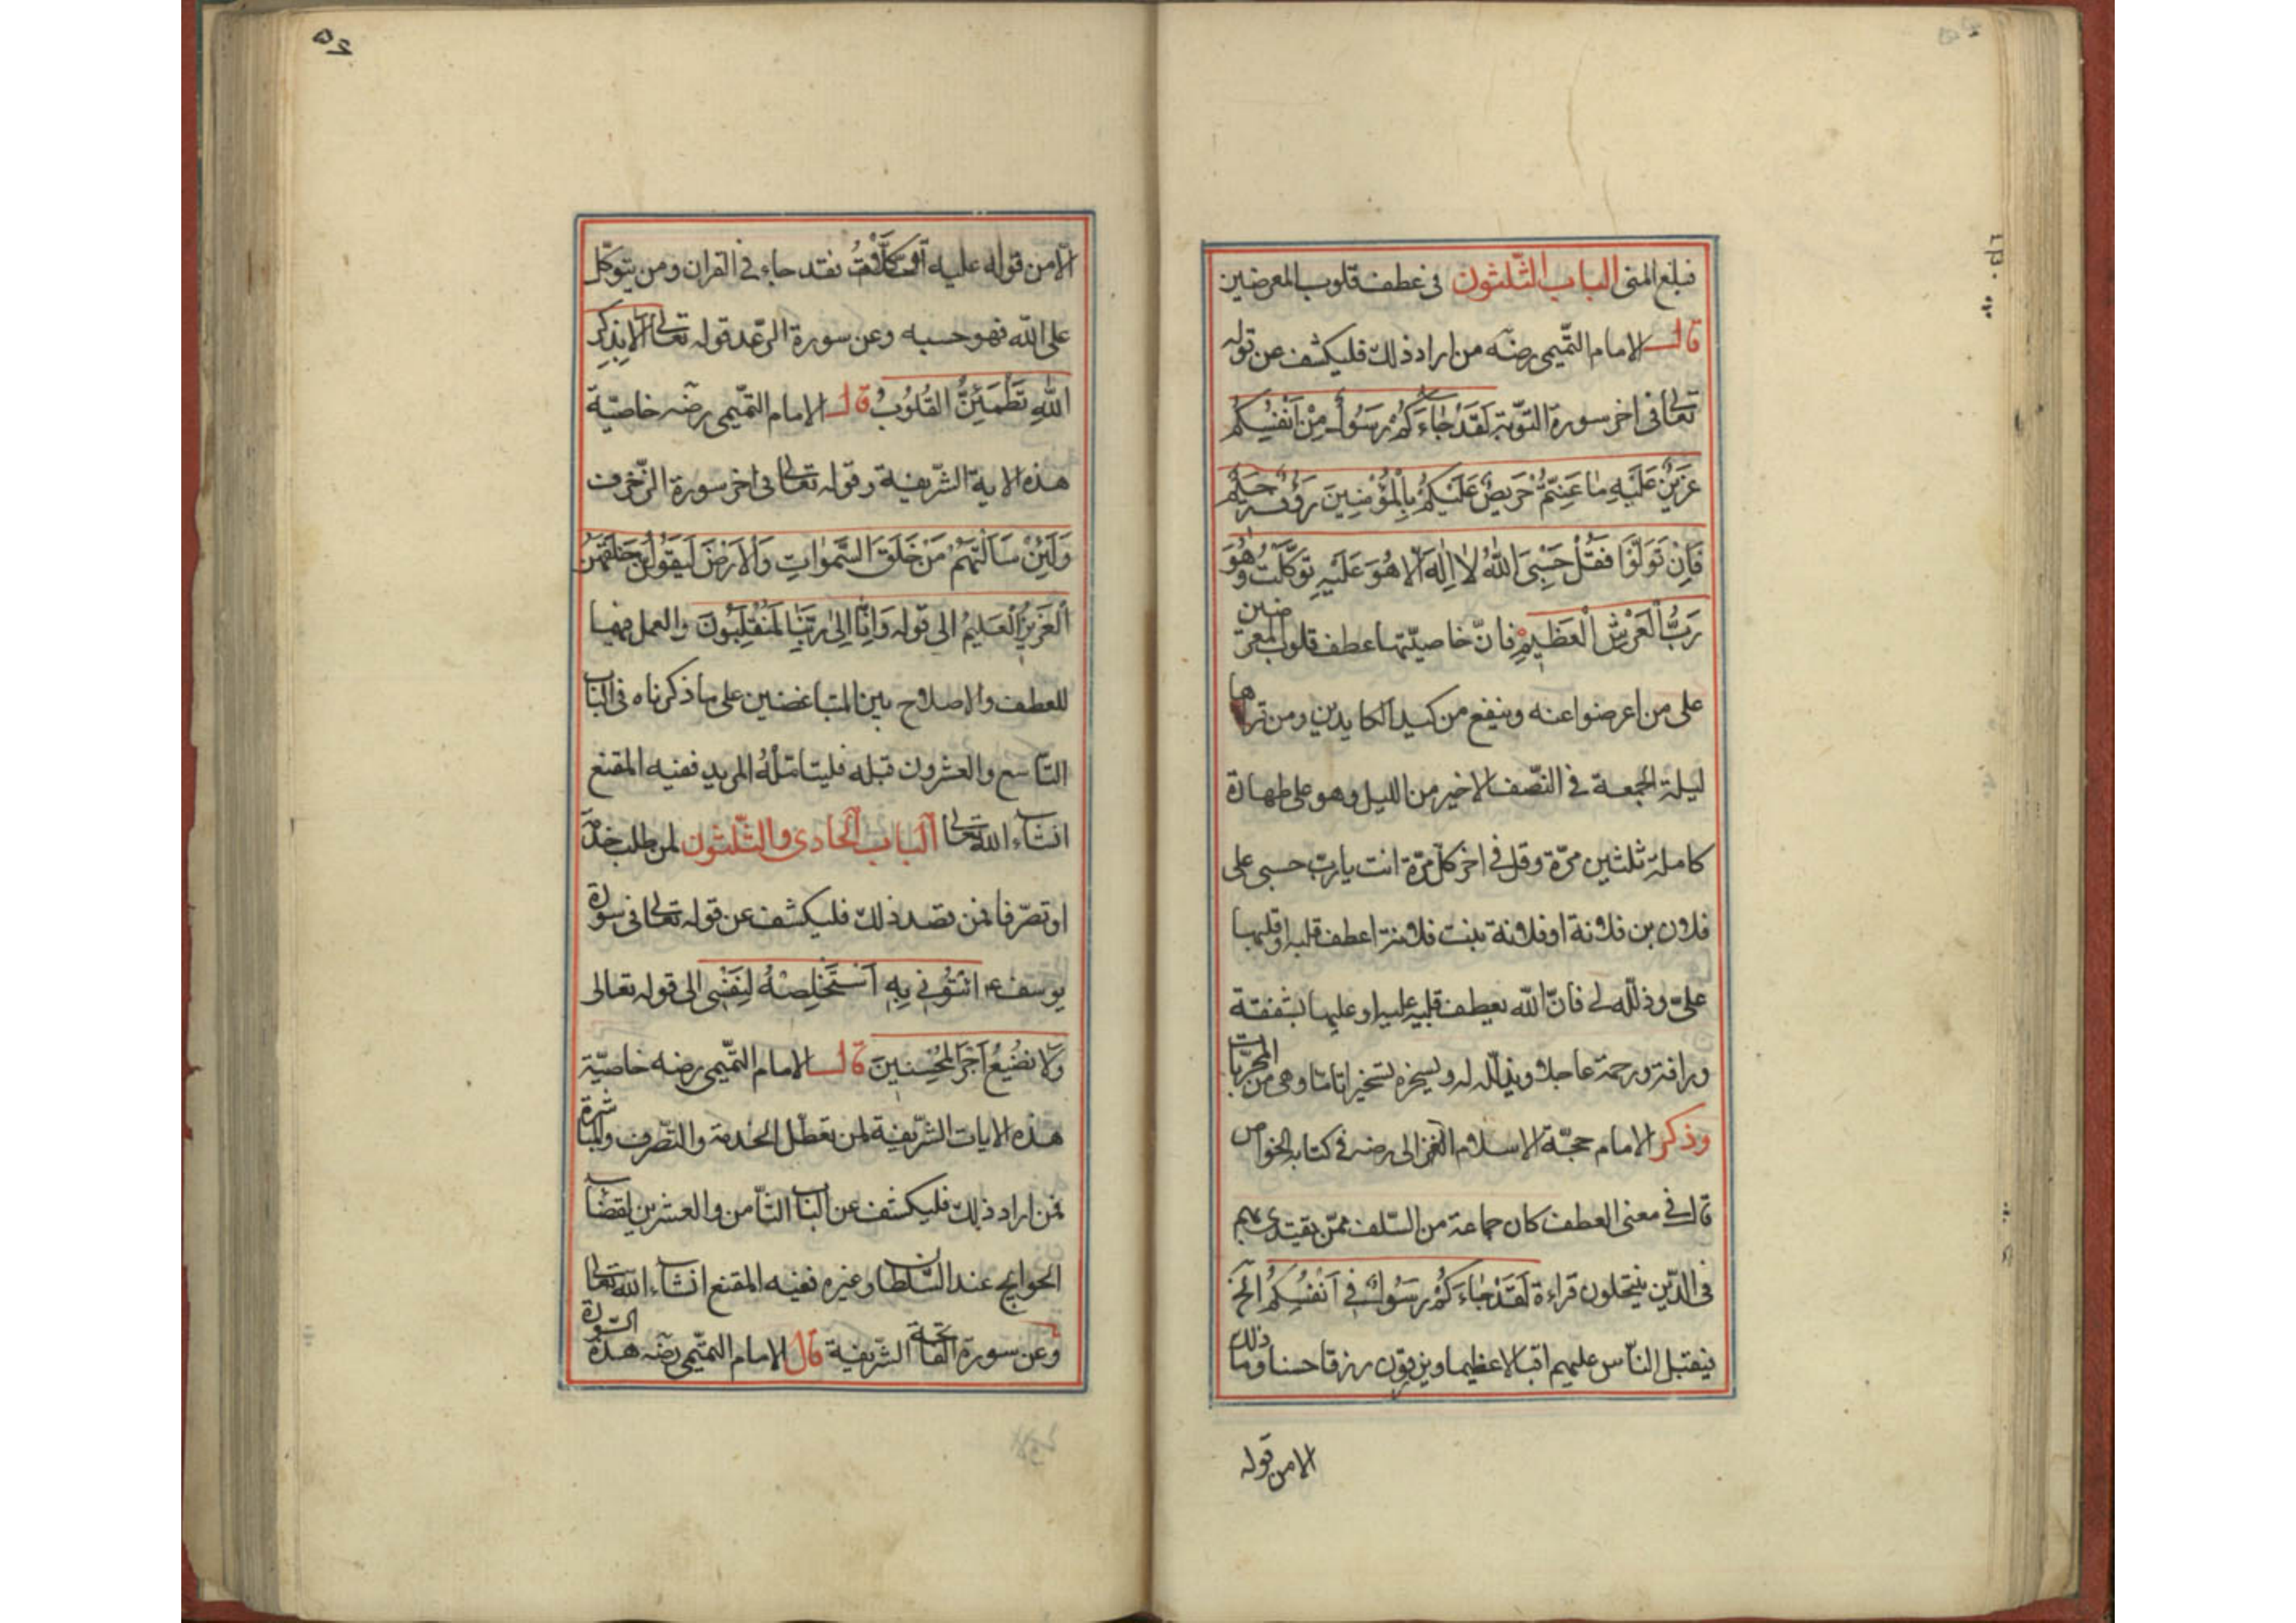 فبلغ المنى الباب الثّلثون فى عطف قلوب المعرضين
قال الامام التّميمى رضه من اراد ذلك فليكشف عن قوله
تعالى فى اخر سورة التّوبة لَقَدْ جَاءَكُمْ رَسُولٌ مِنْ اَنْفُسِكُمْ
عَزِيزٌ عَلَيْهِ مَا عَنِتُّمْ حَرِيصٌ عَلَيْكُمْ بِالْمُؤْمِنِينَ رَؤُفٌ رَحِيمٌ
فَاِنْ تَوَلَّوْا فَقُلْ حَسْبِىَ اللّٰهُ لَا اِلٰهَ اِلَّا هُوَ عَلَيْهِ تَوَكَّلْتُ وَهُوَ
رَبُّ الْعَرْشِ الْعَظِيمِ فانّ خاصيّتها عطف قلوب المعرضين
على من اعرضوا عنه وينفع من كيد الكايدين ومن قراها
ليلة الجمعة فى النّصف الاخير من الليل وهو على طهارة
كاملة ثلثين مرّة وقل فى اخر كلّ مرّة انت يا ربّ حسبى على
فلان بن فلانة او فلانة بنت فلانة اعطف قلبه او قلبها
علىّ وذلّله لى فانّ اللّه يعطف قلبه عليه او عليها بشفقة
ورافة ورحمة عاجلا ويذلّله له ويسخره تسخيرا تامّا وهى من المجرّبات
وذكر الامام حجّة الاسلام الغزالى رضه فى كتابه الخواص
قال فى معنى العطف كان جماعة من السّلف ممّن يقتدى بهم
فى الدّين ينتحلون قراءة لَقَدْ جَاءَكُمْ رَسُولٌ فى اَنْفُسِكُمْ الخ
فيقبل النّاس عليهم اقبالا عظيما ويرزقون رزقا حسنا وما ذلك
الا من قوله
٥٢
الّا من قوله عليه توكّلت فقد جاء فى القران ومن يتوكّل
على اللّه فهو حسبه وعن سورة الرّعد قوله تعالى اَلَا بِذِكْرِ
اللّٰهِ تَطْمَئِنُّ الْقُلُوبُ قال الامام التّميمى رضه خاصيّة
هذه الاية الشّريفة وقوله تعالى فى اخر سورة الزّخرف
وَلَئِنْ سَاَلْتَهُمْ مَنْ خَلَقَ السَّمٰوَاتِ وَالْاَرْضَ لَيَقُولُنَّ خَلَقَهُنَّ
الْعَزِيزُ الْعَلِيمُ الى قوله وَاِنَّا اِلٰى رَبِّنَا لَمُنْقَلِبُونَ والعمل فيها
للعطف والاصلاح بين المتباغضين على ما ذكرناه فى الباب
التّاسع والعشرون قبله فليتامّله المريد ففيه المقنع
انشاء اللّه تعالى الباب الحادى والثّلثون لمن طلب خدمة
او تصرّفا فمن قصد ذلك فليكشف عن قوله تعالى فى سورة
يوسف عم ائْتُونِى بِهِ اَسْتَخْلِصْهُ لِنَفْسِى الى قوله تعالى
وَلَا نُضِيعُ اَجْرَ الْمُحْسِنِينَ قال الامام التّميمى رضه خاصيّة
هذه الايات الشّريفة لمن تعطّل الخدمة والتّصرف والمباشرة
فمن اراد ذلك فليكشف عن الباب الثّامن والعشرين لقضاء
الحوايج عند السّلطان وغيره ففيه المقنع انشاء اللّه تعالى
وعن سورة الفاتحة الشّريفة قال الامام التّميمى رضه هذه السّورة